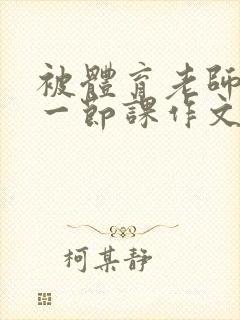 被體育老師
一節課作文
柯某靜